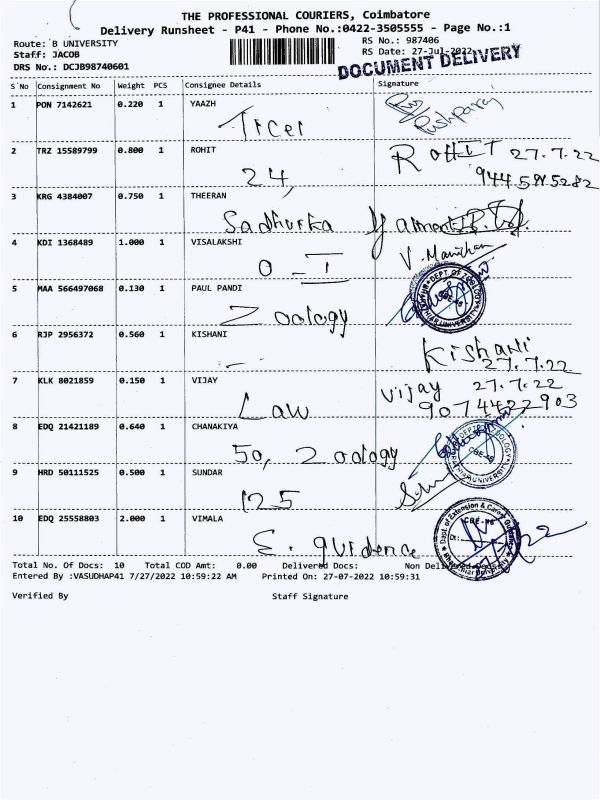 THE PROFESSIONAL COURIERS, Coimbatore
Delivery Runsheet - P41 - Phone No.:0422-3505555 - Page No.:1
Route: B UNIVERSITY
Staff: JACOB
DRS No.: DCJB98740601
RS No.: 987406
RS Date: 27-Jul-2022
DOCUMENT DELIVERY
S'No Consignment No Weight PCS Consignee Details Signature
1 PON 7142621 0.220 1 YAAZH
Pushparaj
2 TRZ 15589799 0.800 1 ROHIT ROHIT 27.7.22
24,
3 KRG 4384007 0.750 1 THEERAN
Sadhurka
4 KDI 1368489 1.000 1 VISALAKSHI
O - I
5 MAA 566497068 0.130 1 PAUL PANDI DEPT OF ZOOLOGY
Zoology
6 RJP 2956372 0.560 1 KISHANI Kishani
27.7.22
7 KLK 8021859 0.150 1 VIJAY Vijay 27.7.22
Law 9074422903
8 EDQ 21421189 0.640 1 CHANAKIYA
50, Zoology
9 HRD 50111525 0.500 1 SUNDAR
125
10 EDQ 25558803 2.000 1 VIMALA
E. guidence
Total No. Of Docs: 10 Total COD Amt: 0.00 Delivered Docs: Non Delivered Docs:
Entered By :VASUDHAP41 7/27/2022 10:59:22 AM Printed On: 27-07-2022 10:59:31
Verified By Staff Signature